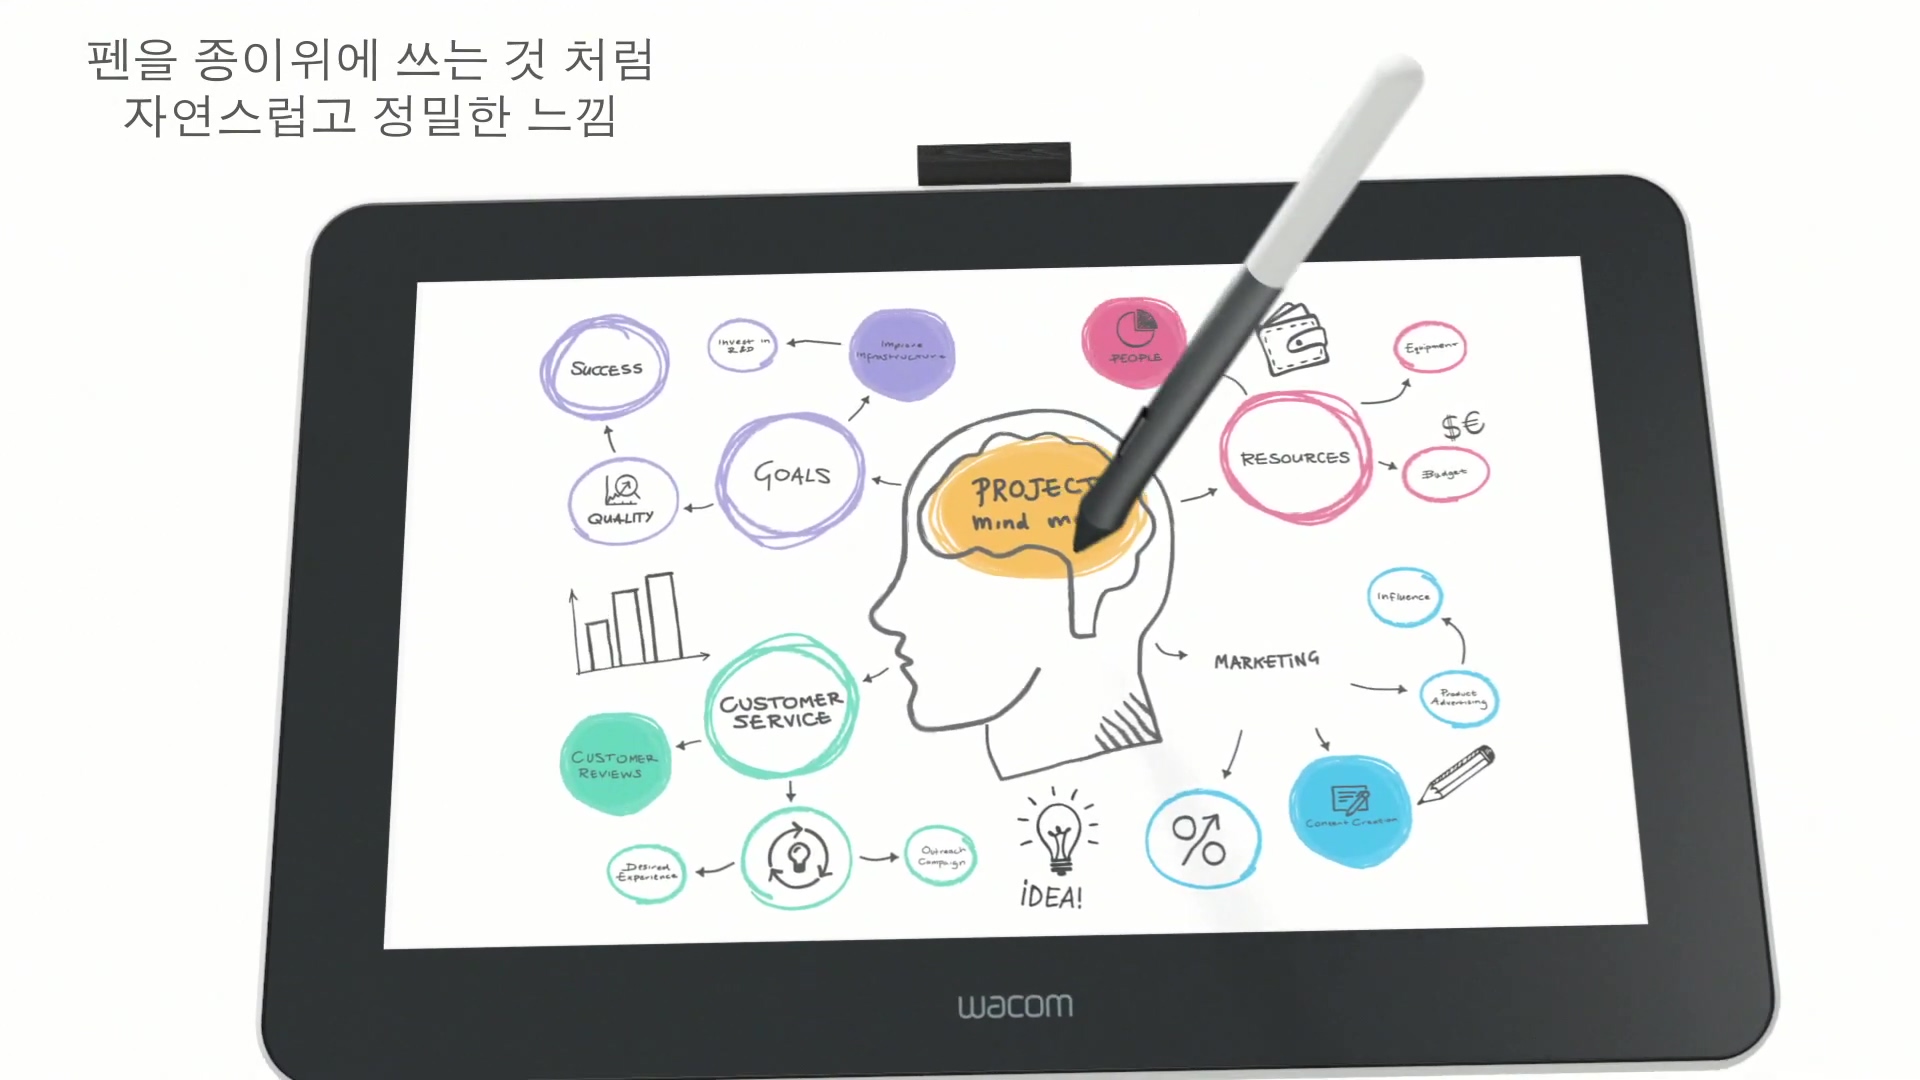 펜을 종이위에 쓰는 것 처럼
자연스럽고 정밀한 느낌
SUCCESS
Invest in
R&D
Improve
Infrastructure
PEOPLE
Equipment
$€
GOALS
QUALITY
PROJECT
mind m
RESOURCES
Budget
Influence
MARKETING
Product
Advertising
CUSTOMER
SERVICE
CUSTOMER
REVIEWS
Desired
Experience
Outreach
Campaign
iDEA!
%
Content Creation
wacom